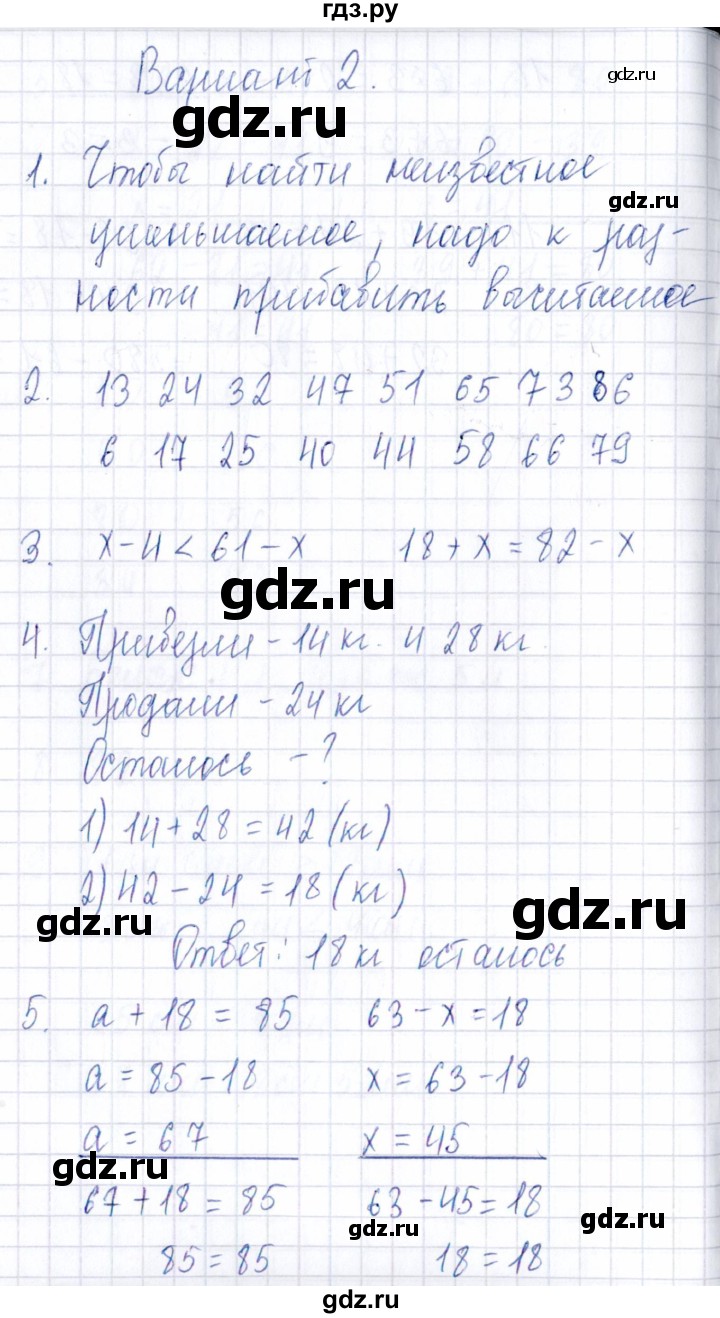 гдз.ру
Вариант 2.
gdz.ru
gdz.ru
1. Чтобы найти неизвестное
gdz.ru
уменьшаемое, надо к раз-
ности прибавить вычитаемое
2. 13 24 32 47 51 65 73 86
6 17 25 40 44 58 66 79
3. х - 4 < 61 - х 18 + х = 82 - х
gdz.ru
4. Привезли - 14 кг. и 28 кг.
Продали - 24 кг
Осталось - ?
1) 14 + 28 = 42 (кг)
2) 42 - 24 = 18 (кг)
gdz.ru
gdz.ru
Ответ: 18 кг осталось
5. а + 18 = 85 63 - х = 18
а = 85 - 18 х = 63 - 18
а = 67 х = 45
gdz.ru
67 + 18 = 85 63 - 45 = 18
gdz.ru
gdz.ru
85 = 85 18 = 18
gdz.ru